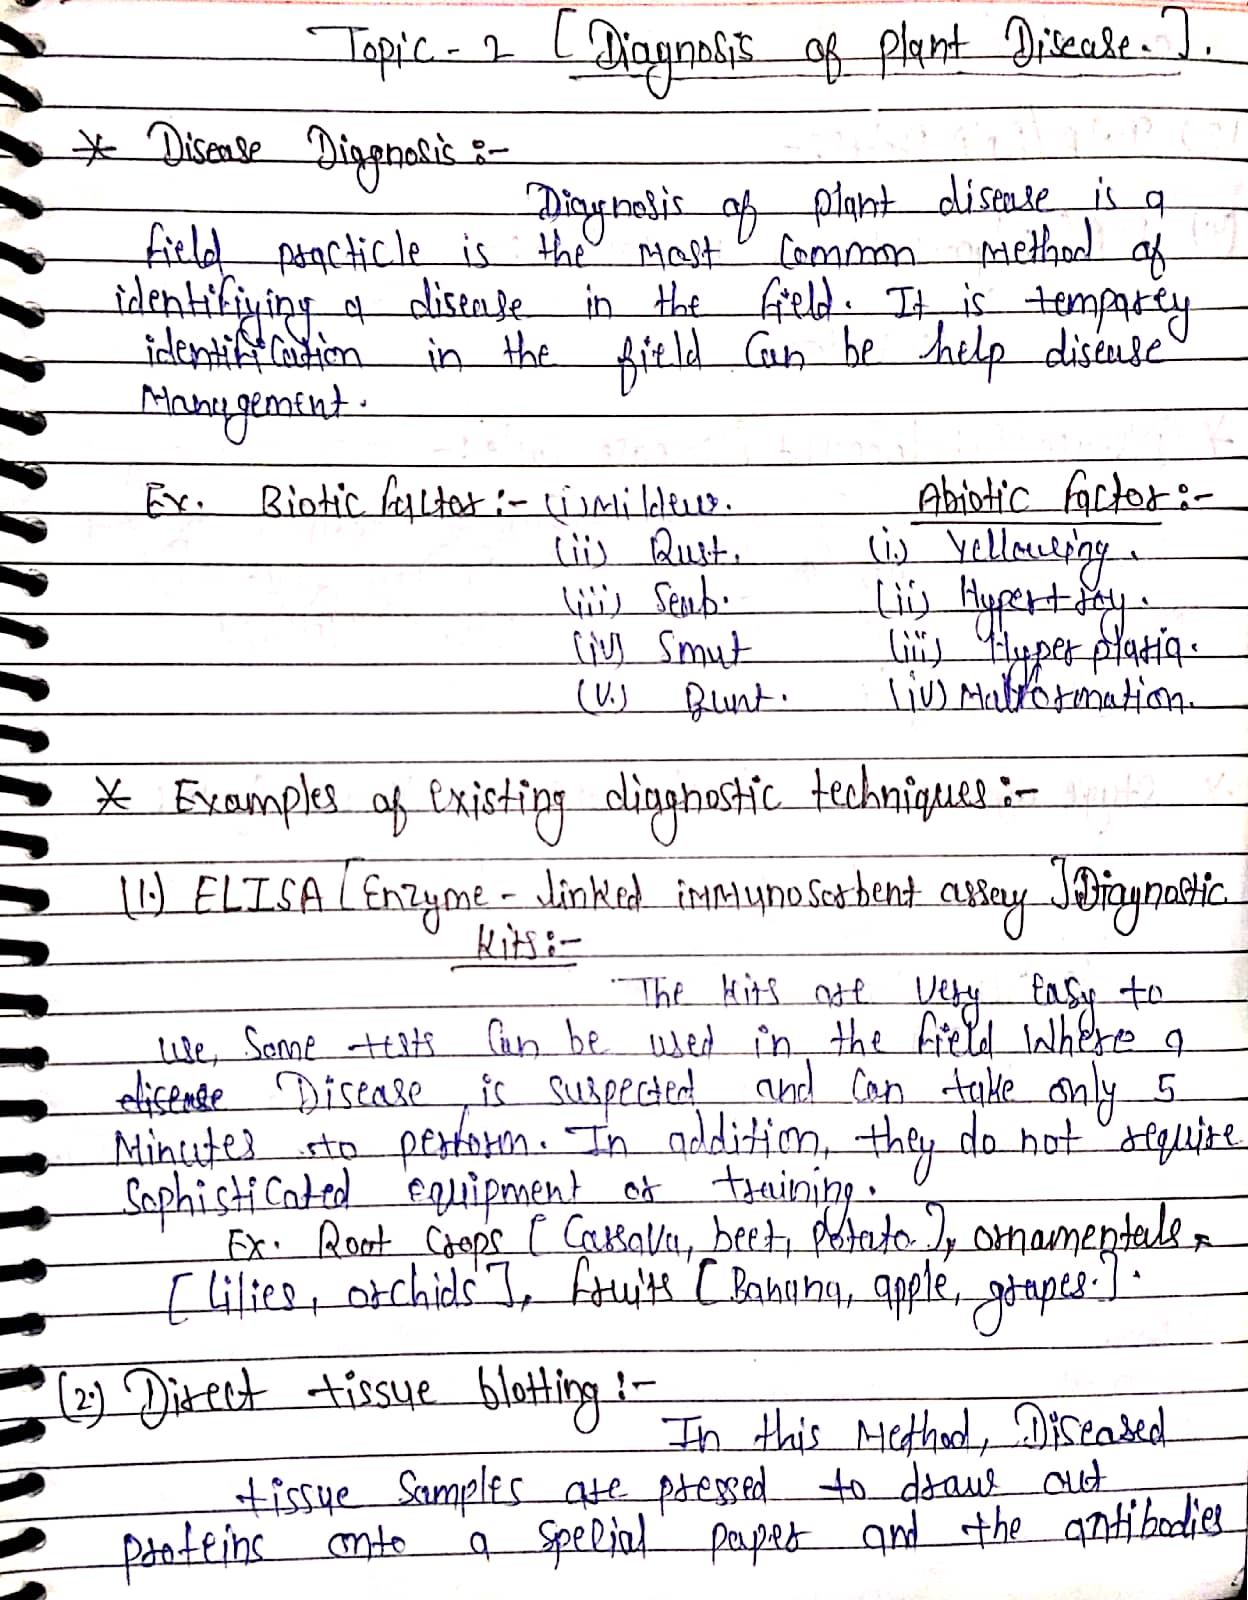 Topic - 2 [ Diagnosis of plant Disease. ].
* Disease Diagnosis :-
Diagnosis of plant disease is a
field practicle is the most common method of
identifiying a disease in the field. It is temparey
identification in the field can be help disease
Management.
Ex. Biotic factor :- (i) Mildew. Abiotic factor :-
(ii) Rust. (i.) Yellowing.
(iii) Scab. (ii) Hypertroy.
(iv) Smut (iii) Hyper platia.
(v.) Bunt. (iv) Malformation.
* Examples of existing diagnostic techniques :-
(1.) ELISA [Enzyme - linked immunosorbent assay ] Diagnostic
Kits :-
The kits are very easy to
use, Some tests can be used in the field where a
disease Disease is suspected and can take only 5
Minutes to perform. In addition, they do not require
Sophisticated equipment or training.
Ex. Root Crops [ Cassava, beet, potato ], ornamentals
[ lilies, orchids ], fruits [ Banana, apple, grapes. ].
(2.) Direct tissue blotting :-
In this Method, Diseased
tissue Samples are pressed to draw out
proteins onto a special paper and the antibodies